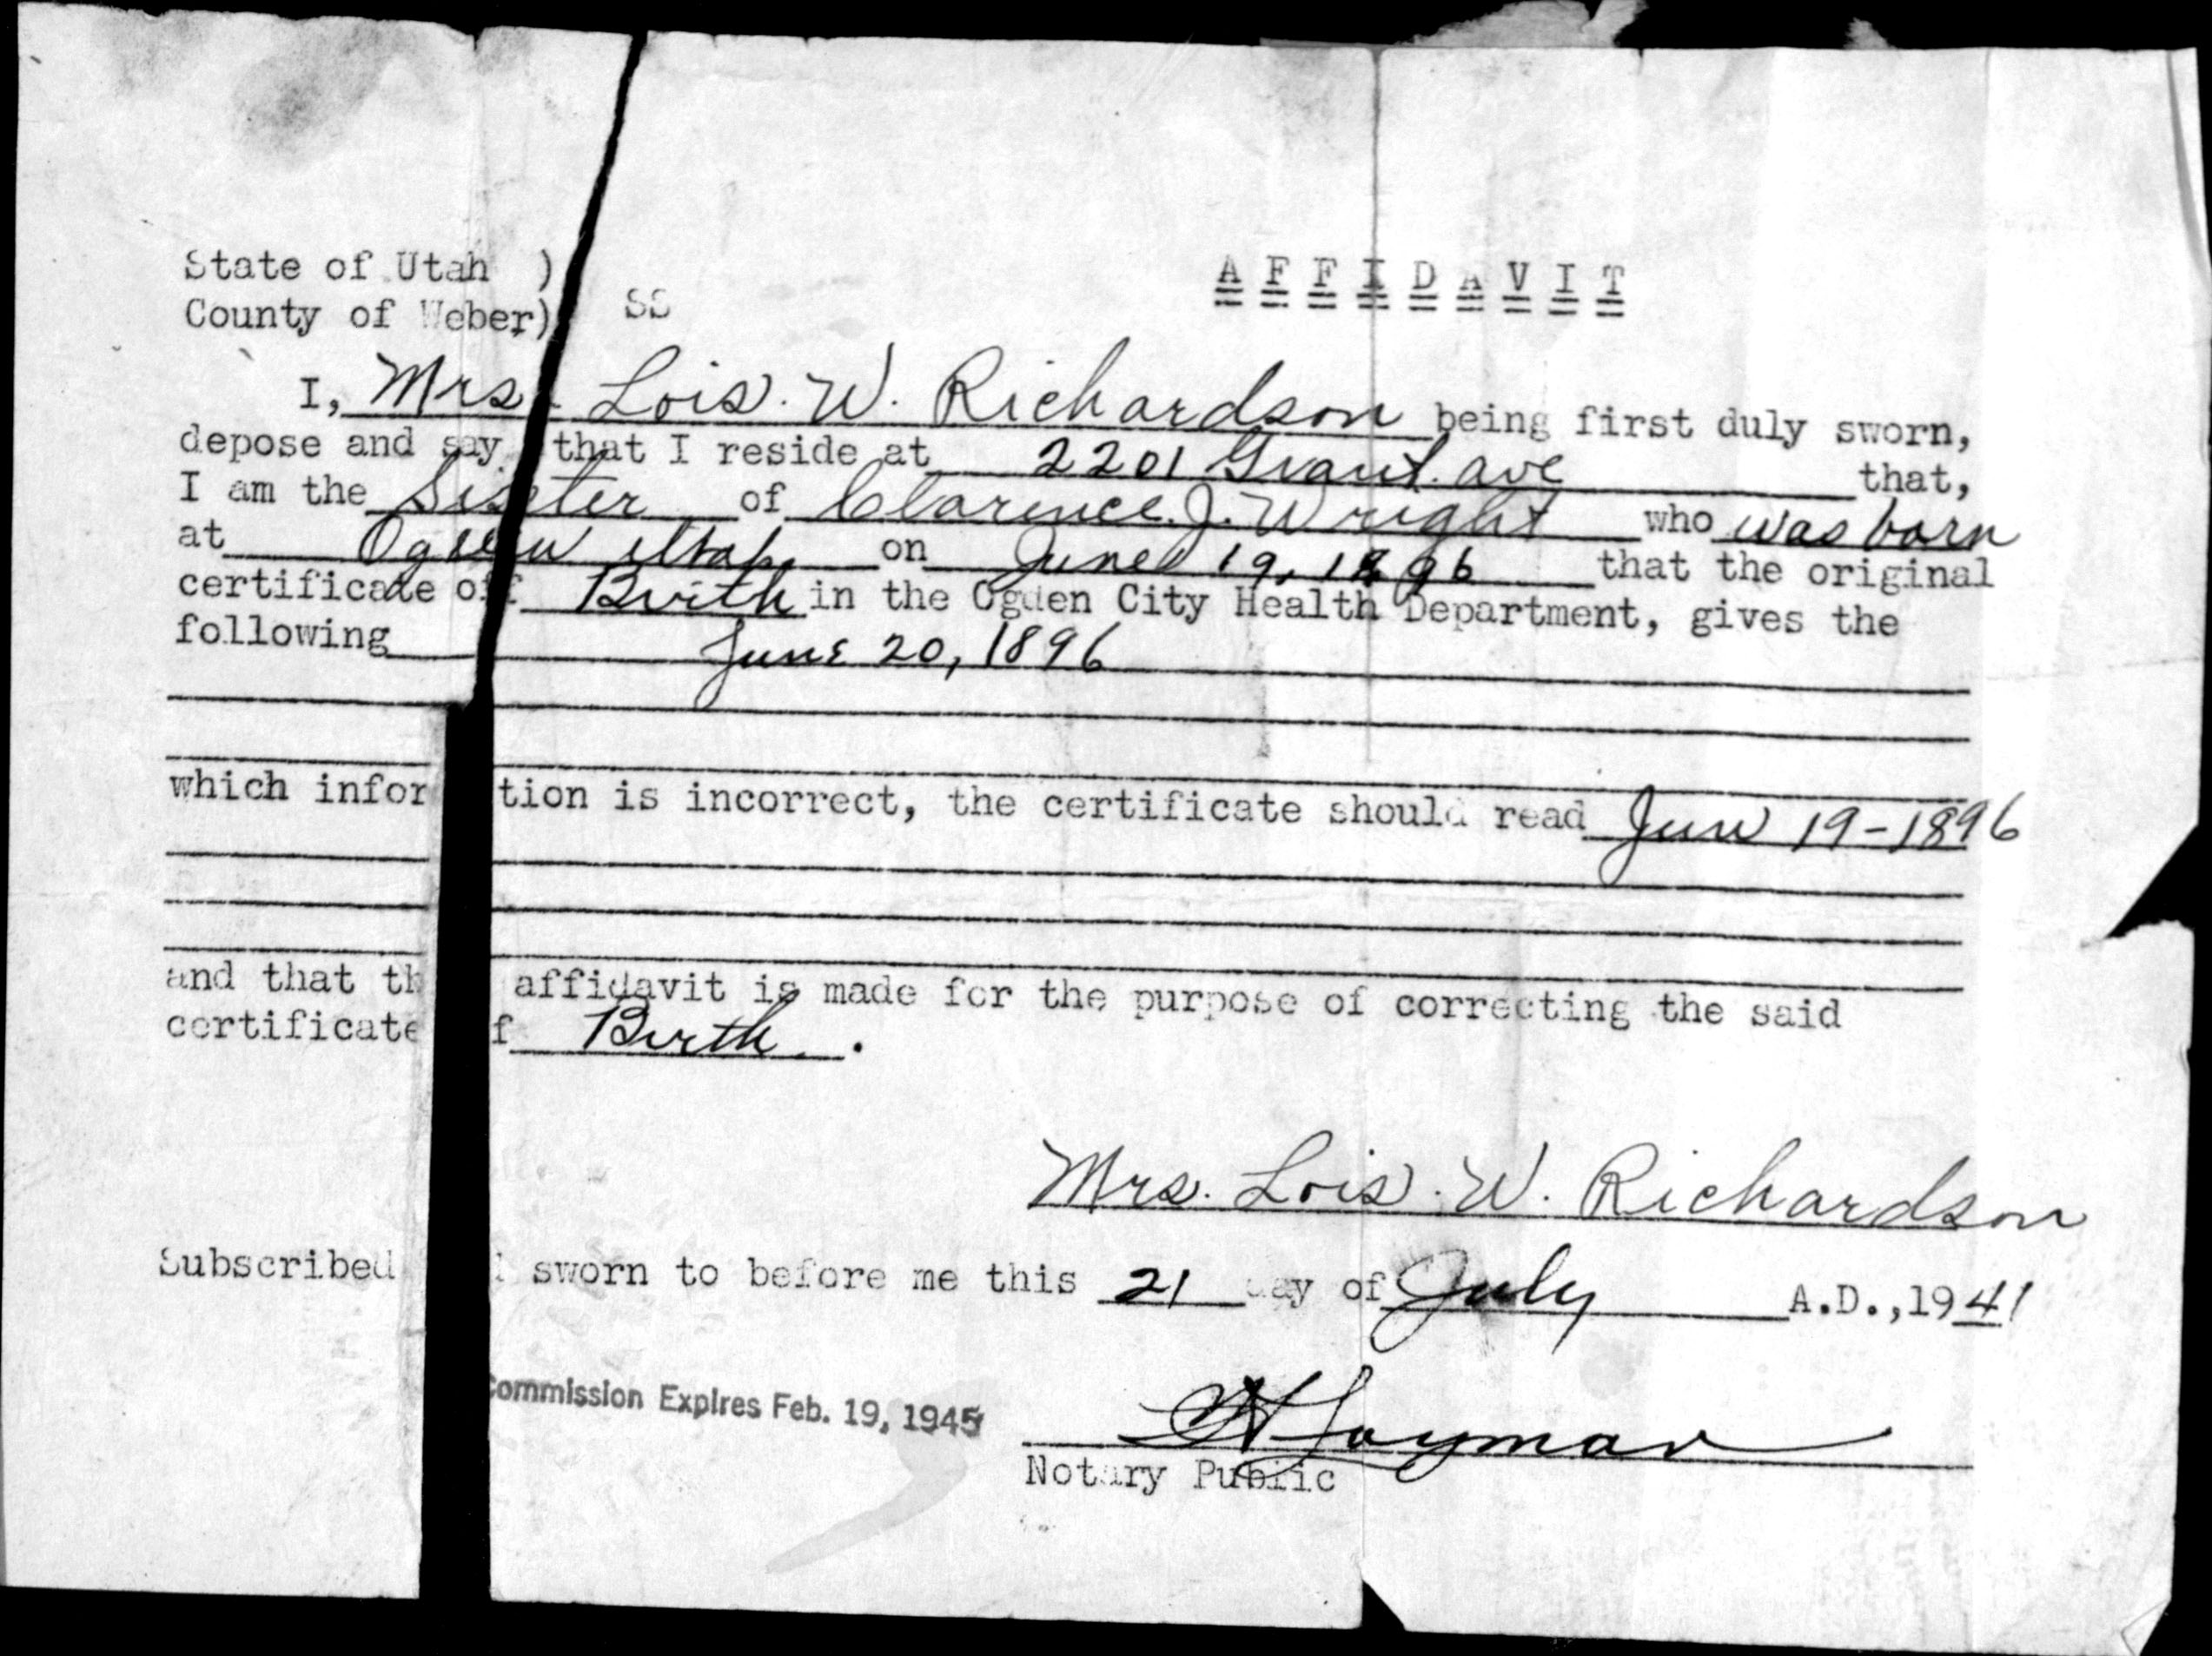 State of Utah )
County of Weber) SS
AFFIDAVIT
I, Mrs. Lois. W. Richardson being first duly sworn,
depose and say that I reside at 2201 Grant. ave that,
I am the Sister of Clarence. J. Wright who was born
at Ogden Utah on June 19, 1896 that the original
certificate of Birth in the Ogden City Health Department, gives the
following June 20, 1896
which infor tion is incorrect, the certificate should read June 19-1896
and that th affidavit is made for the purpose of correcting the said
certificate f Birth.
Mrs. Lois. W. Richardson
Subscribed sworn to before me this 21 day of July A.D., 1941
Commission Expires Feb. 19, 1945
Layman
Notary Public